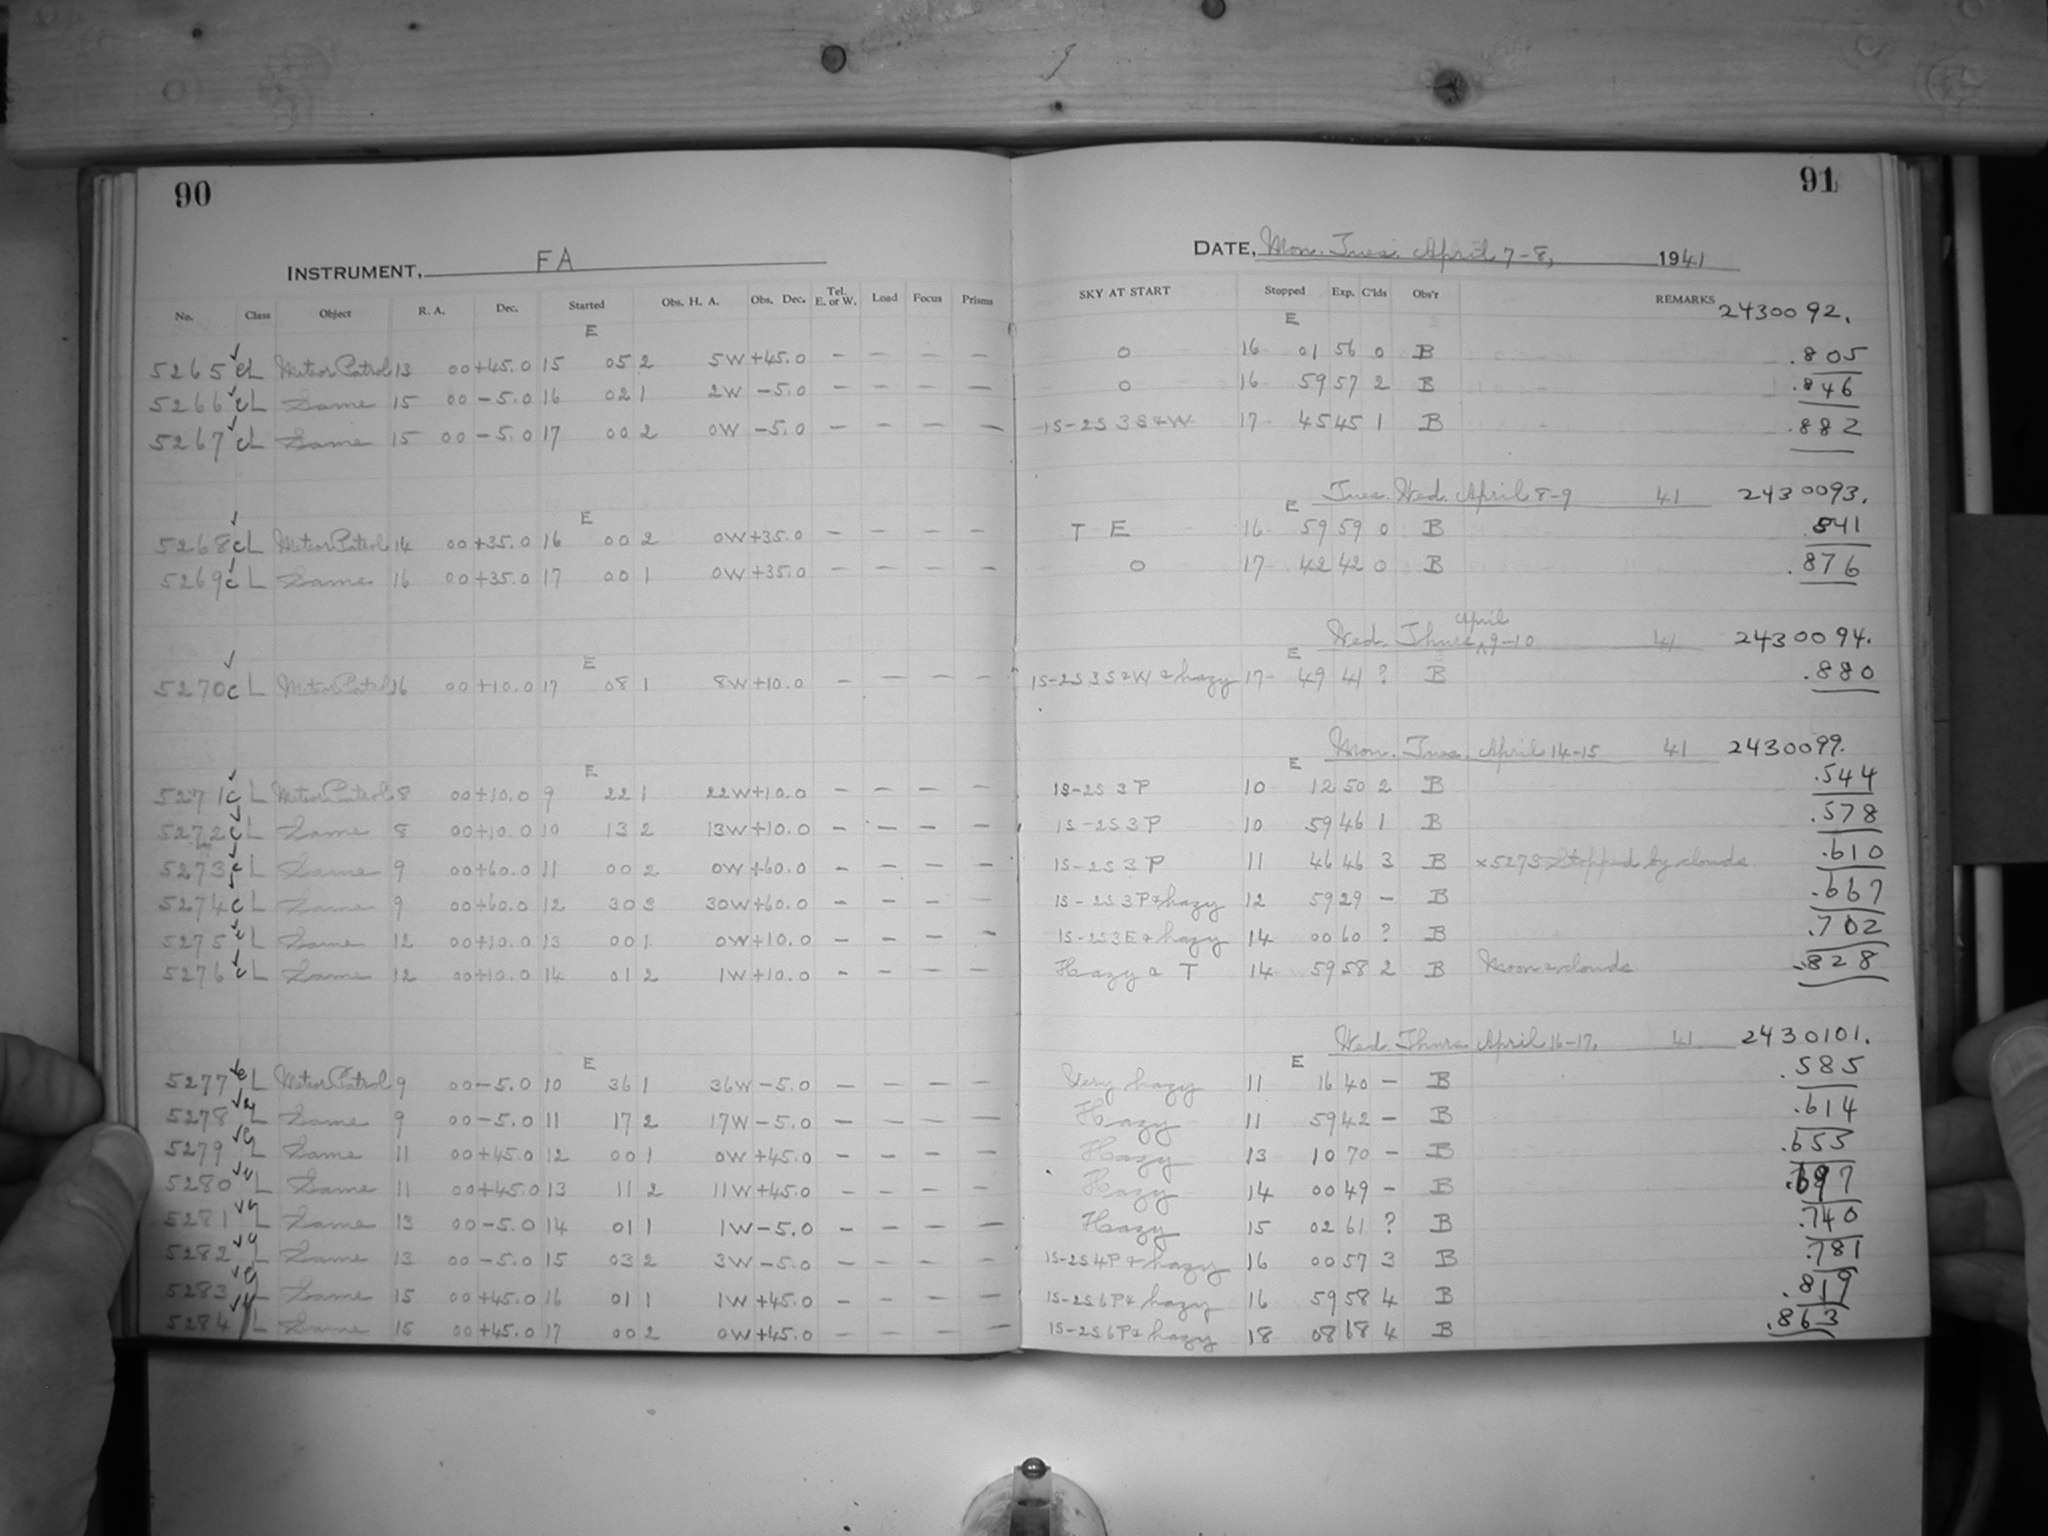 90
INSTRUMENT, FA
No. Class Object R. A. Dec. Started Obs. H. A. Obs. Dec. Tel. E. or W. Load Focus Prisms
E
5265 cL Meteor Patrol 13 00 +45.0 15 05 2 5W +45.0 — — — —
5266 cL Same 15 00 −5.0 16 02 1 2W −5.0 — — — —
5267 cL Same 15 00 −5.0 17 00 2 0W −5.0 — — — —
E
5268 cL Meteor Patrol 14 00 +35.0 16 00 2 0W +35.0 — — — —
5269 cL Same 16 00 +35.0 17 00 1 0W +35.0 — — — —
E
5270 cL Meteor Patrol 16 00 +10.0 17 08 1 8W +10.0 — — — —
E
5271 cL Meteor Patrol 8 00 +10.0 9 22 1 22W +10.0 — — — —
5272 cL Same 8 00 +10.0 10 13 2 13W +10.0 — — — —
5273 cL Same 9 00 +60.0 11 00 2 0W +60.0 — — — —
5274 cL Same 9 00 +60.0 12 30 3 30W +60.0 — — — —
5275 cL Same 12 00 +10.0 13 00 1 0W +10.0 — — — —
5276 cL Same 12 00 +10.0 14 01 2 1W +10.0 — — — —
E
5277 cL Meteor Patrol 9 00 −5.0 10 36 1 36W −5.0 — — — —
5278 cL Same 9 00 −5.0 11 17 2 17W −5.0 — — — —
5279 cL Same 11 00 +45.0 12 00 1 0W +45.0 — — — —
5280 cL Same 11 00 +45.0 13 11 2 11W +45.0 — — — —
5281 cL Same 13 00 −5.0 14 01 1 1W −5.0 — — — —
5282 cL Same 13 00 −5.0 15 03 2 3W −5.0 — — — —
5283 cL Same 15 00 +45.0 16 01 1 1W +45.0 — — — —
5284 L Same 15 00 +45.0 17 00 2 0W +45.0 — — — —
91
DATE, Mon. Tues. April 7-8, 1941
SKY AT START Stopped Exp. C'lds Obs'r REMARKS
E 2430092.
0 16 01 56 0 B .805
0 16 59 57 2 B .846
1S-2S 3 S&W 17 45 45 1 B .882
E Tues. Wed. April 8-9 41 2430093.
T E 16 59 59 0 B .841
0 17 42 42 0 B .876
E Wed. Thurs. April 9-10 41 2430094.
1S-2S 3 S&W & hazy 17 49 41 ? B .880
E Mon. Tues. April 14-15 41 2430099.
1S-2S 3 P 10 12 50 2 B .544
1S-2S 3 P 10 59 46 1 B .578
1S-2S 3 P 11 46 46 3 B ×5273 Stopped by clouds .610
1S-2S 3 P & hazy 12 59 29 — B .667
1S-2S 3 E & hazy 14 00 60 ? B .702
Hazy & T 14 59 58 2 B Moon & clouds .828
E Wed. Thurs. April 16-17. 41 2430101.
Very hazy 11 16 40 — B .585
Hazy 11 59 42 — B .614
Hazy 13 10 70 — B .655
Hazy 14 00 49 — B .697
Hazy 15 02 61 ? B .740
1S-2S 4P & hazy 16 00 57 3 B .781
1S-2S 6P & hazy 16 59 58 4 B .819
1S-2S 6P & hazy 18 08 68 4 B .863